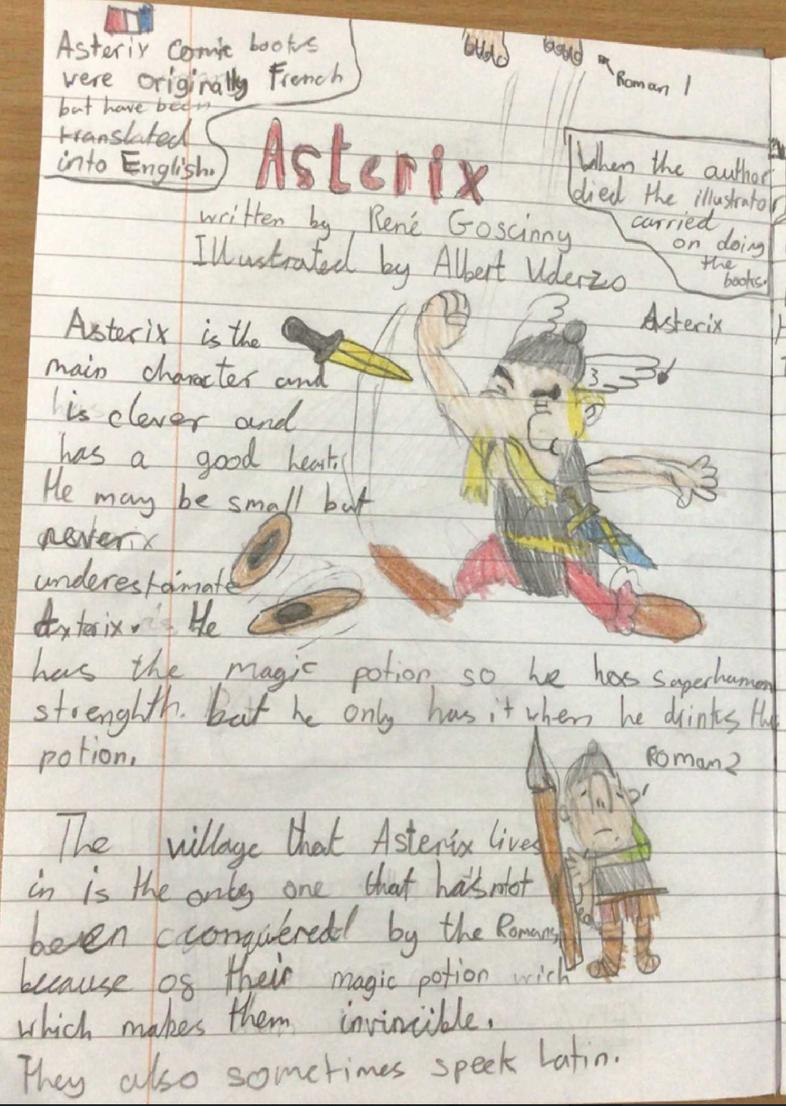 Asterix Comic books
were originally French
but have been
translated
into English.
Roman 1
Asterix
When the author
died the illustrator
carried
on doing
the
books.
written by René Goscinny
Illustrated by Albert Uderzo
Asterix
Asterix is the
main character and
is clever and
has a good heart.
He may be small but
never
underestamate
Asterix. He
has the magic potion so he has superhuman
strenghth. but he only has it when he drinks the
potion.
Roman 2
The village that Asterix lives
in is the only one that has not
been conquered by the Romans,
because of their magic potion wich
which makes them invincible.
They also sometimes speek Latin.